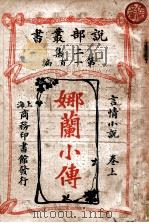 說部叢書
第一集
第百編
言情小說 卷上
娜蘭小傳
上海商務印書館發行